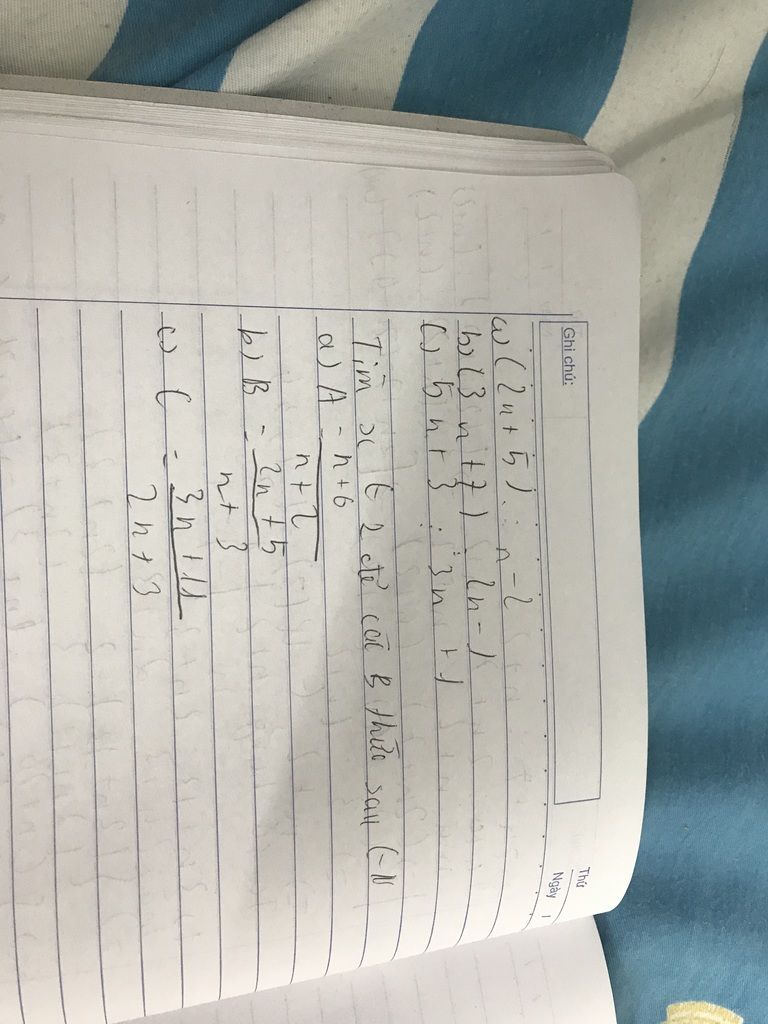 Ghi chú:
Thứ
Ngày
a) (2n+5) ⋮ n-2
b) (3n+7) ⋮ 2n-1
c) 5n+3 ⋮ 3n+1
Tìm x ∈ Z để các B thức sau ∈ N
a) A = n+6
n+2
b) B = 2n+5
n+3
c) C = 3n+11
2n+3